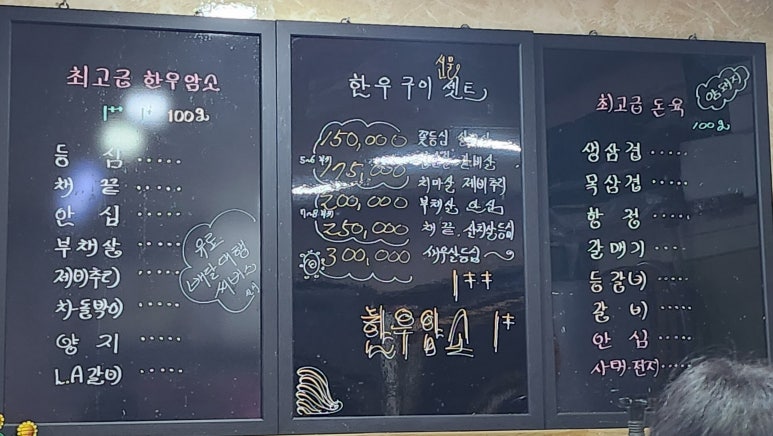 최고급 한우암소
1++ 1+ 100g
등 심 .....
채 끝 .....
안 심 .....
부채살 .....
제비추리 .....
차돌박이 .....
양 지 .....
L.A갈비 .....
유료
배달대행
서비스
한우구이 세트
150,000 꽃등심
5~6
175,000 갈비살
치마살 제비추리
200,000 부채살 안심
7~8
250,000 채끝
300,000 새우살등심
1++
한우암소 1+
양돼지
최고급 돈육
100g
생삼겹 .....
목삼겹 .....
항 정 .....
갈매기 .....
등갈비 .....
갈 비 .....
안 심 .....
사태.전지 .....